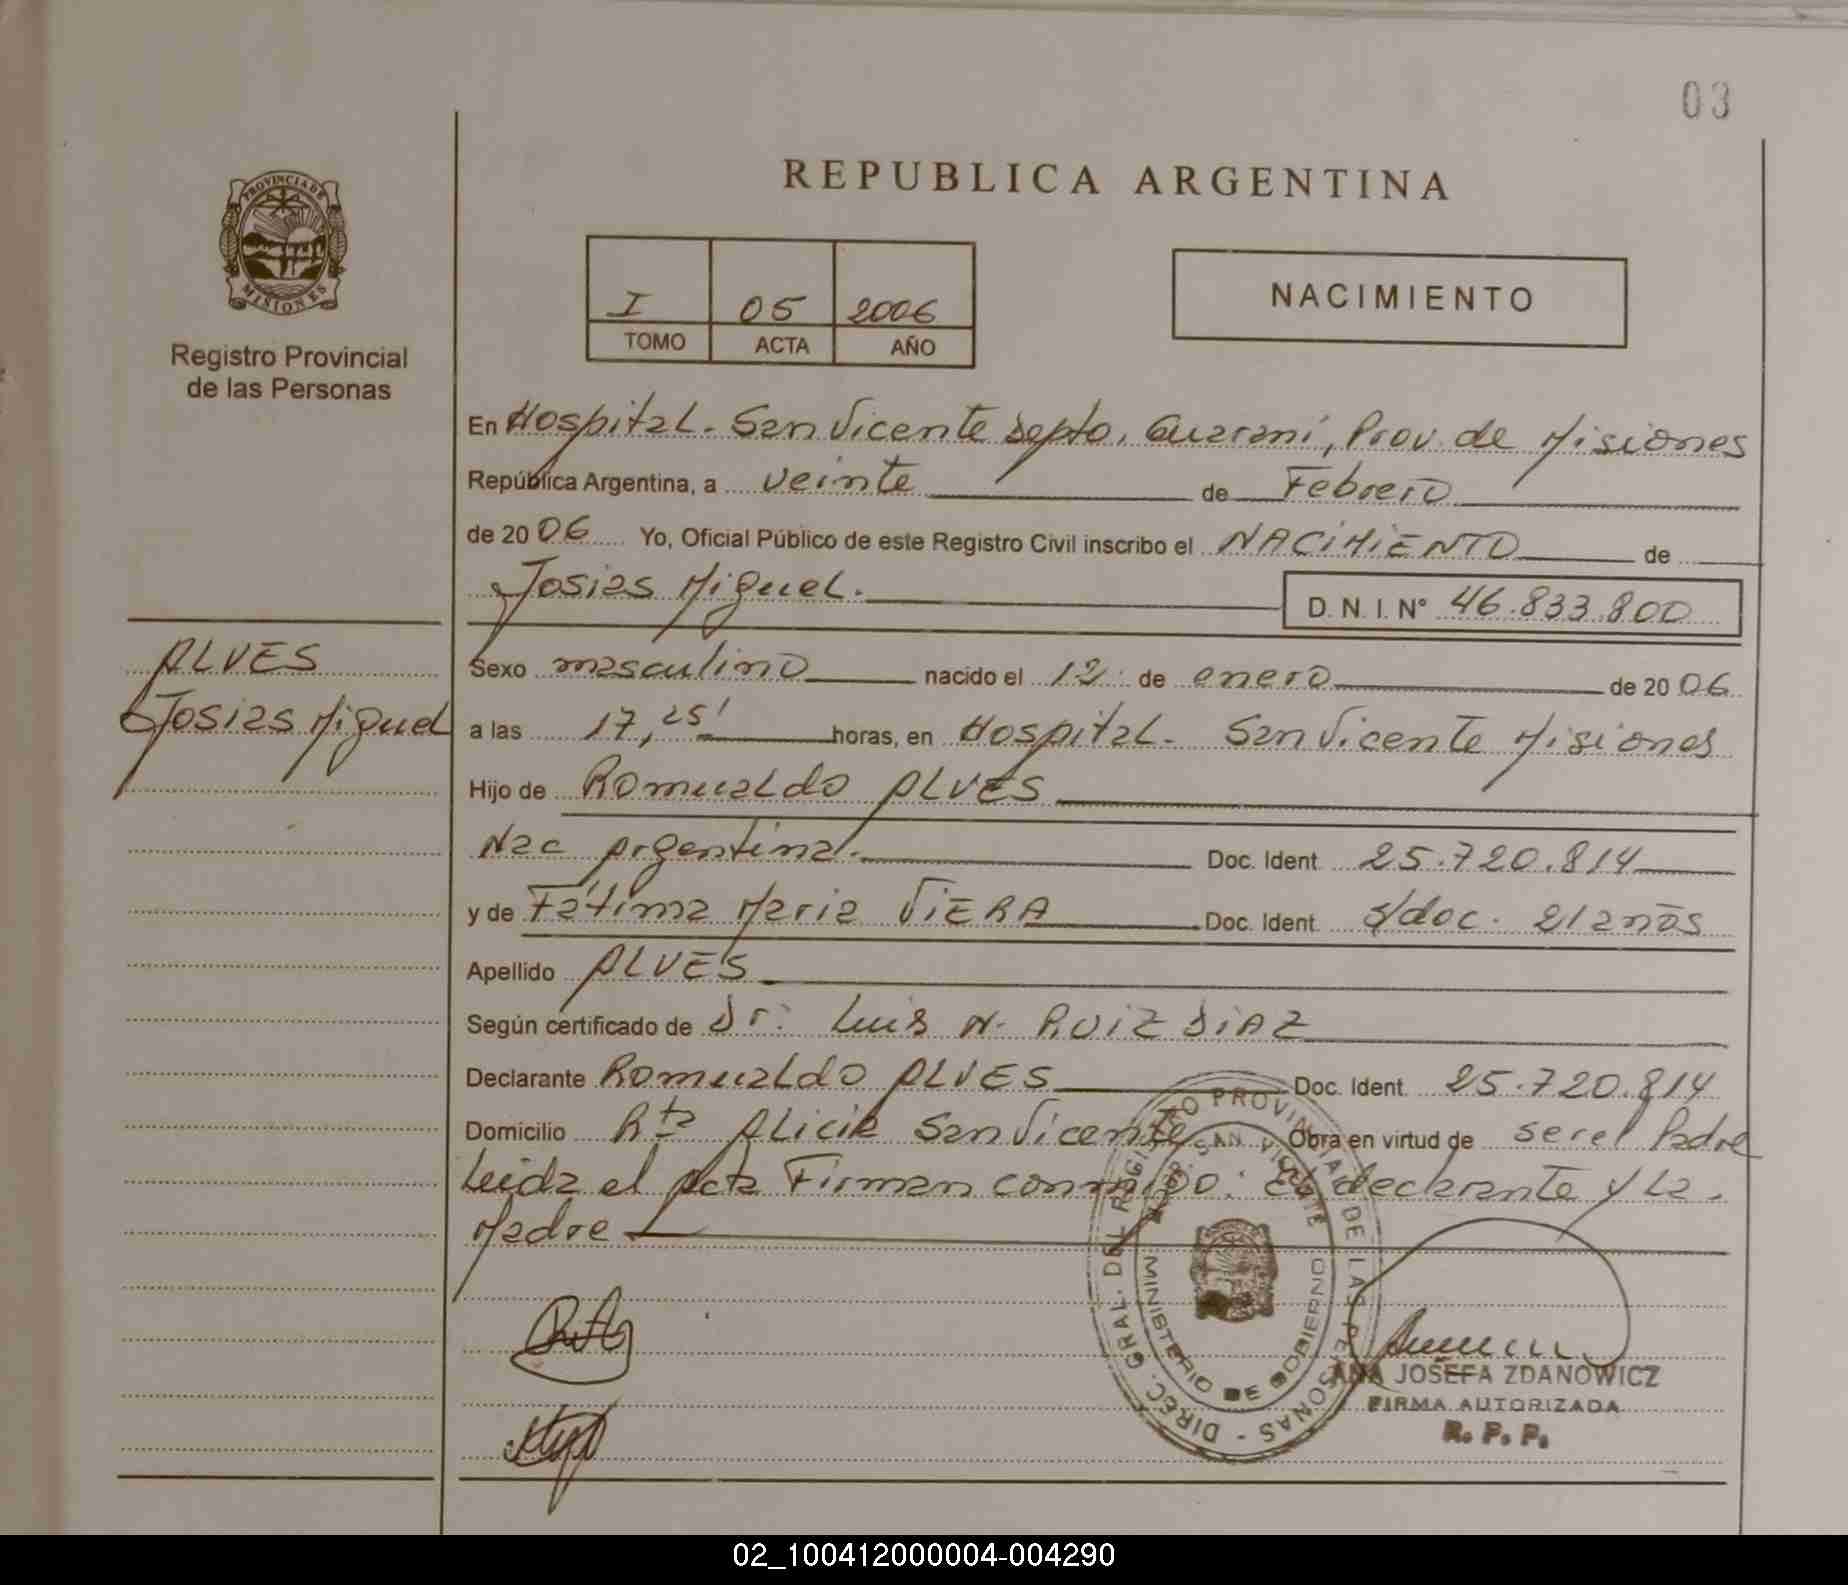 03
REPUBLICA ARGENTINA
PROVINCIA DE
MISIONES
Registro Provincial
de las Personas
I 05 2006
TOMO ACTA AÑO
NACIMIENTO
En Hospital. San Vicente Depto. Guaraní, Prov. de Misiones
República Argentina, a veinte de Febrero
de 2006 Yo, Oficial Público de este Registro Civil inscribo el NACIMIENTO de
Josias Miguel. D. N. I. N° 46.833.800
ALVES
Josias Miguel
Sexo masculino nacido el 12 de enero de 2006
a las 17,25' horas, en Hospital. San Vicente Misiones
Hijo de Romualdo ALVES
Nac Argentina. Doc. Ident. 25.720.814
y de Fátima Maria VIERA Doc. Ident. s/doc. 21 años
Apellido ALVES
Según certificado de Dr. Luis N. RUIZ DIAZ
Declarante Romualdo ALVES Doc. Ident. 25.720.814
Domicilio Rta Alicia San Vicente Obra en virtud de ser el Padre
Leida el Acta Firman conmigo: El declarante y La.
Madre
DIREC. GRAL. DEL REGISTRO PROVINCIAL DE LAS PERSONAS -
SAN VICENTE
MINISTERIO DE GOBIERNO
ANA JOSEFA ZDANOWICZ
FIRMA AUTORIZADA
R. P. P.
02_100412000004-004290